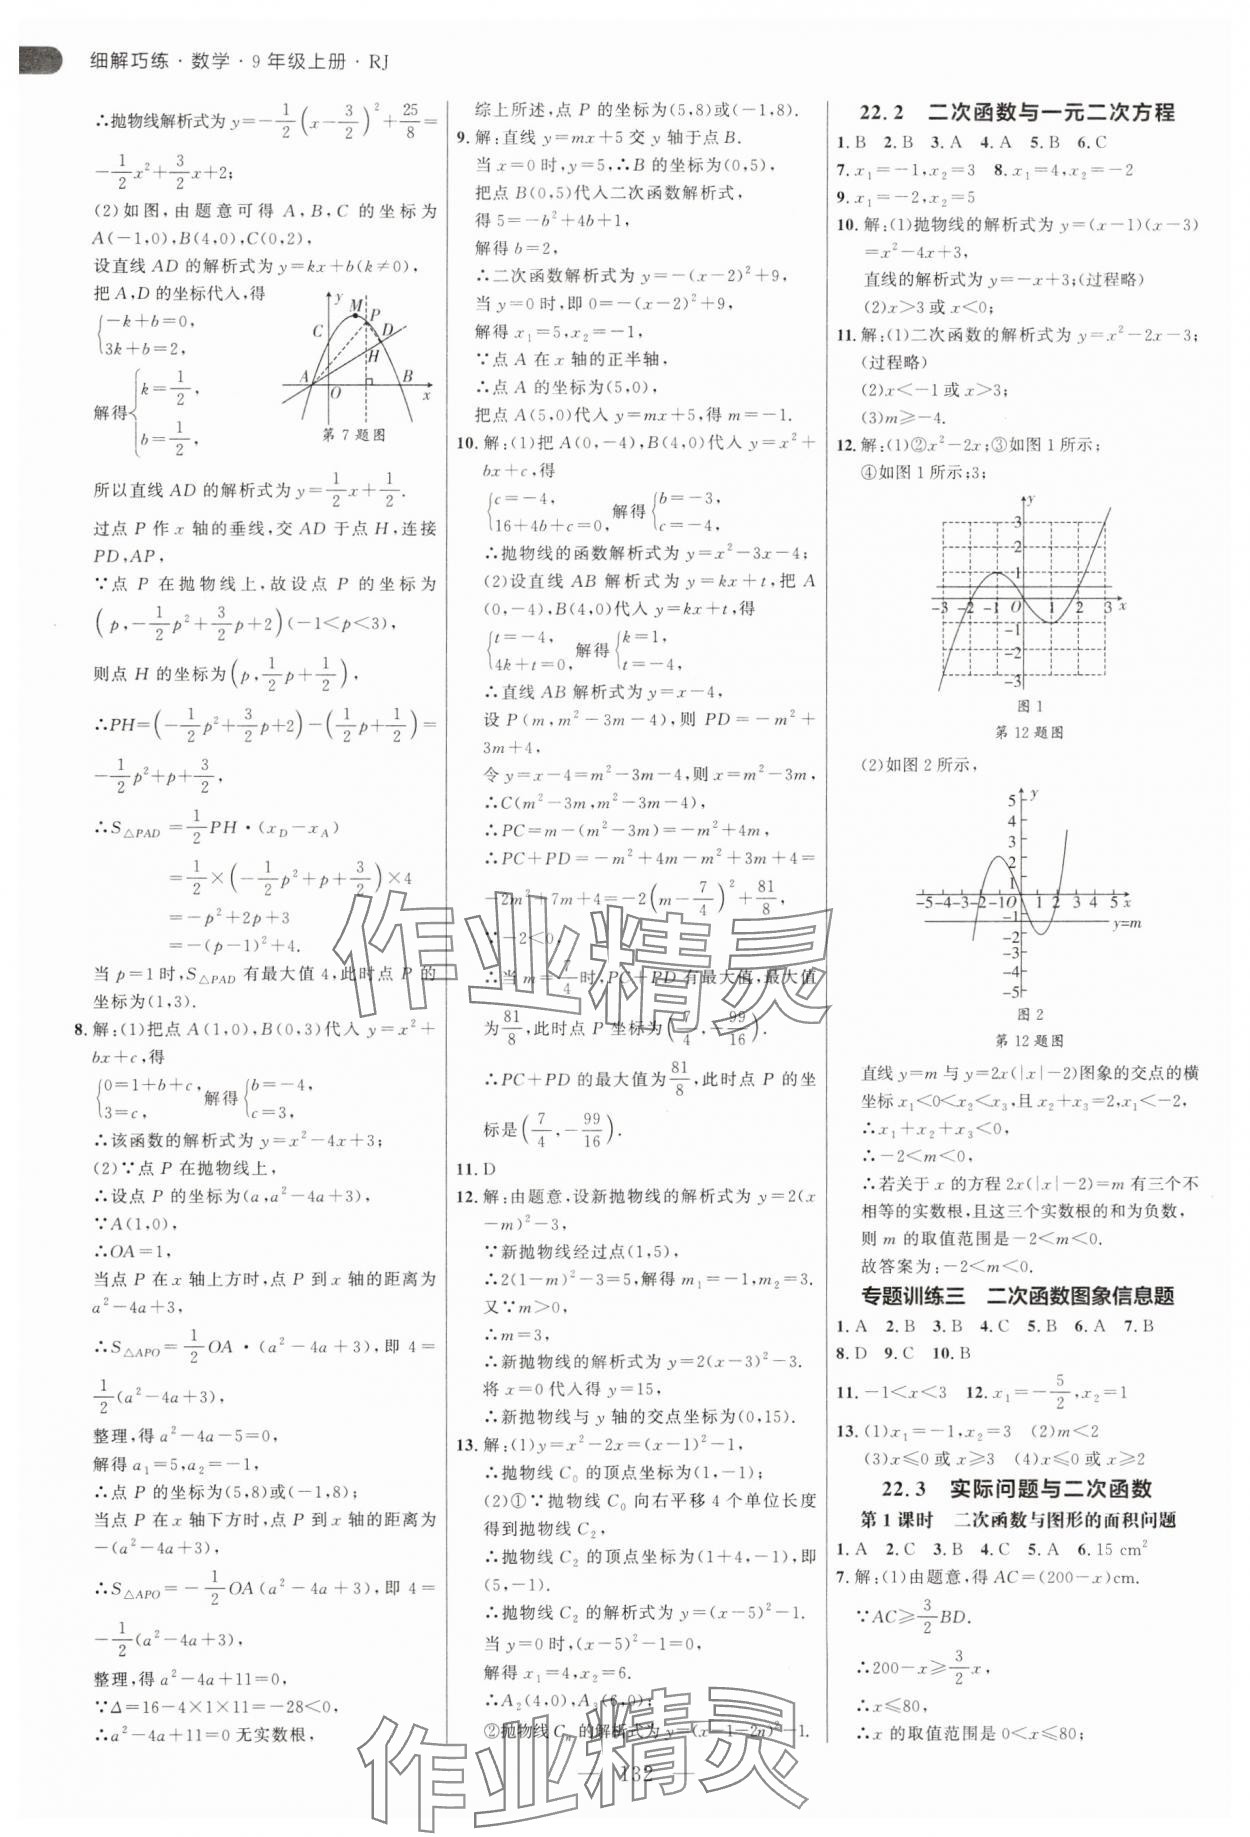 细解巧练·数学·9年级上册·RJ
∴抛物线解析式为 y=-1/2(x-3/2)²+25/8=
-1/2x²+3/2x+2;
(2)如图,由题意可得 A,B,C 的坐标为
A(-1,0),B(4,0),C(0,2),
设直线 AD 的解析式为 y=kx+b(k≠0),
把 A,D 的坐标代入,得
{-k+b=0,
3k+b=2,
解得{k=1/2,
b=1/2,
y
M
P
C
D
H
A
O
B
x
第 7 题图
所以直线 AD 的解析式为 y=1/2x+1/2.
过点 P 作 x 轴的垂线,交 AD 于点 H,连接
PD,AP,
∵点 P 在抛物线上,故设点 P 的坐标为
(p,-1/2p²+3/2p+2)(-1<p<3),
则点 H 的坐标为(p,1/2p+1/2),
∴PH=(-1/2p²+3/2p+2)-(1/2p+1/2)=
-1/2p²+p+3/2,
∴S△PAD=1/2PH·(x_D-x_A)
=1/2×(-1/2p²+p+3/2)×4
=-p²+2p+3
=-(p-1)²+4.
当 p=1时,S△PAD 有最大值 4,此时点 P 的
坐标为(1,3).
8.解:(1)把点 A(1,0),B(0,3)代入 y=x²+
bx+c,得
{0=1+b+c,
3=c,
解得{b=-4,
c=3,
∴该函数的解析式为 y=x²-4x+3;
(2)∵点 P 在抛物线上,
∴设点 P 的坐标为(a,a²-4a+3),
∵A(1,0),
∴OA=1,
当点 P 在 x 轴上方时,点 P 到 x 轴的距离为
a²-4a+3,
∴S△APO=1/2OA·(a²-4a+3),即 4=
1/2(a²-4a+3),
整理,得 a²-4a-5=0,
解得 a₁=5,a₂=-1,
∴点 P 的坐标为(5,8)或(-1,8);
当点 P 在 x 轴下方时,点 P 到 x 轴的距离为
-(a²-4a+3),
∴S△APO=-1/2OA(a²-4a+3),即 4=
-1/2(a²-4a+3),
整理,得 a²-4a+11=0,
∵Δ=16-4×1×11=-28<0,
∴a²-4a+11=0 无实数根,
综上所述,点 P 的坐标为(5,8)或(-1,8).
9.解:直线 y=mx+5 交 y 轴于点 B.
当 x=0 时,y=5,∴B 的坐标为(0,5),
把点 B(0,5)代入二次函数解析式,
得 5=-b²+4b+1,
解得 b=2,
∴二次函数解析式为 y=-(x-2)²+9,
当 y=0 时,即 0=-(x-2)²+9,
解得 x₁=5,x₂=-1,
∵点 A 在 x 轴的正半轴,
∴点 A 的坐标为(5,0),
把点 A(5,0)代入 y=mx+5,得 m=-1.
10.解:(1)把 A(0,-4),B(4,0)代入 y=x²+
bx+c,得
{c=-4,
16+4b+c=0,
解得{b=-3,
c=-4,
∴抛物线的函数解析式为 y=x²-3x-4;
(2)设直线 AB 解析式为 y=kx+t,把 A
(0,-4),B(4,0)代入 y=kx+t,得
{t=-4,
4k+t=0,
解得{k=1,
t=-4,
∴直线 AB 解析式为 y=x-4,
设 P(m,m²-3m-4),则 PD=-m²+
3m+4,
令 y=x-4=m²-3m-4,则 x=m²-3m,
∴C(m²-3m,m²-3m-4),
∴PC=m-(m²-3m)=-m²+4m,
∴PC+PD=-m²+4m-m²+3m+4=
-2m²+7m+4=-2(m-7/4)²+81/8,
∵-2<0,
∴当 m=7/4时,PC+PD 有最大值,最大值
为81/8,此时点 P 坐标为(7/4,-99/16).
∴PC+PD 的最大值为81/8,此时点 P 的坐
标是(7/4,-99/16).
11.D
12.解:由题意,设新抛物线的解析式为 y=2(x
-m)²-3,
∵新抛物线经过点(1,5),
∴2(1-m)²-3=5,解得 m₁=-1,m₂=3.
又∵m>0,
∴m=3,
∴新抛物线的解析式为 y=2(x-3)²-3.
将 x=0代入得 y=15,
∴新抛物线与 y 轴的交点坐标为(0,15).
13.解:(1)y=x²-2x=(x-1)²-1,
∴抛物线 C₀ 的顶点坐标为(1,-1);
(2)①∵抛物线 C₀ 向右平移 4 个单位长度
得到抛物线 C₂,
∴抛物线 C₂ 的顶点坐标为(1+4,-1),即
(5,-1).
∴抛物线 C₂ 的解析式为 y=(x-5)²-1.
当 y=0时,(x-5)²-1=0,
解得 x₁=4,x₂=6.
∴A₂(4,0),A₃(6,0);
②抛物线 Cₙ 的解析式为 y=(x-1-2n)²-1.
22.2 二次函数与一元二次方程
1.B 2.B 3.A 4.A 5.B 6.C
7.x₁=-1,x₂=3 8.x₁=4,x₂=-2
9.x₁=-2,x₂=5
10.解:(1)抛物线的解析式为 y=(x-1)(x-3)
=x²-4x+3,
直线的解析式为 y=-x+3;(过程略)
(2)x>3 或 x<0;
11.解:(1)二次函数的解析式为 y=x²-2x-3;
(过程略)
(2)x<-1 或 x>3;
(3)m≥-4.
12.解:(1)②x²-2x;③如图 1 所示;
④如图 1 所示;3;
y
3
2
1
-3 -2 -1 O 1 2 3 x
-1
-2
-3
图 1
第 12 题图
(2)如图 2 所示,
y
5
4
3
2
1
-5-4-3-2-1O 1 2 3 4 5 x
-1
y=m
-2
-3
-4
-5
图 2
第 12 题图
直线 y=m 与 y=2x(|x|-2)图象的交点的横
坐标 x₁<0<x₂<x₃,且 x₂+x₃=2,x₁<-2,
∴x₁+x₂+x₃<0,
∴-2<m<0,
∴若关于 x 的方程 2x(|x|-2)=m 有三个不
相等的实数根,且这三个实数根的和为负数,
则 m 的取值范围是-2<m<0.
故答案为:-2<m<0.
专题训练三 二次函数图象信息题
1.A 2.B 3.B 4.C 5.B 6.A 7.B
8.D 9.C 10.B
11.-1<x<3 12.x₁=-5/2,x₂=1
13.(1)x₁=-1,x₂=3 (2)m<2
(3)x≤0 或 x≥3 (4)x≤0 或 x≥2
22.3 实际问题与二次函数
第 1 课时 二次函数与图形的面积问题
1.A 2.C 3.B 4.C 5.A 6.15 cm²
7.解:(1)由题意,得 AC=(200-x)cm.
∵AC≥3/2BD.
∴200-x≥3/2x,
∴x≤80,
∴x 的取值范围是 0<x≤80;
132
作业精灵
作业精灵